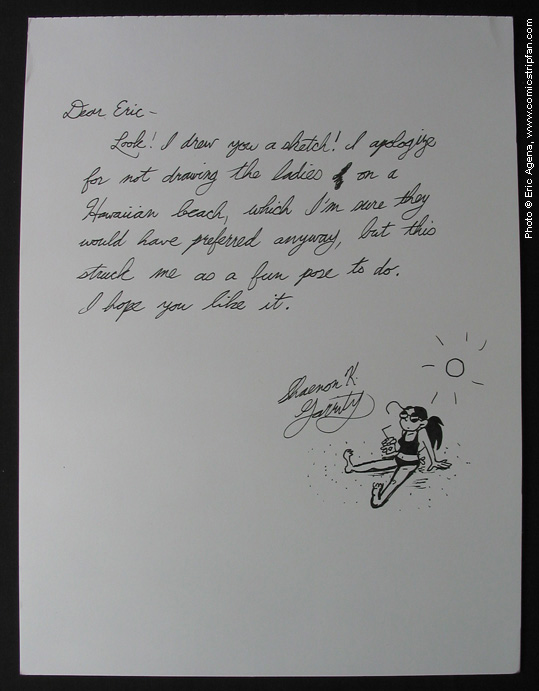 Dear Eric-
Look! I drew you a sketch! I apologize
for not drawing the ladies on a
Hawaiian beach, which I'm sure they
would have preferred anyway, but this
struck me as a fun pose to do.
I hope you like it.
Shaenon K.
Garrity
Photo © Eric Agena, www.comicstripfan.com